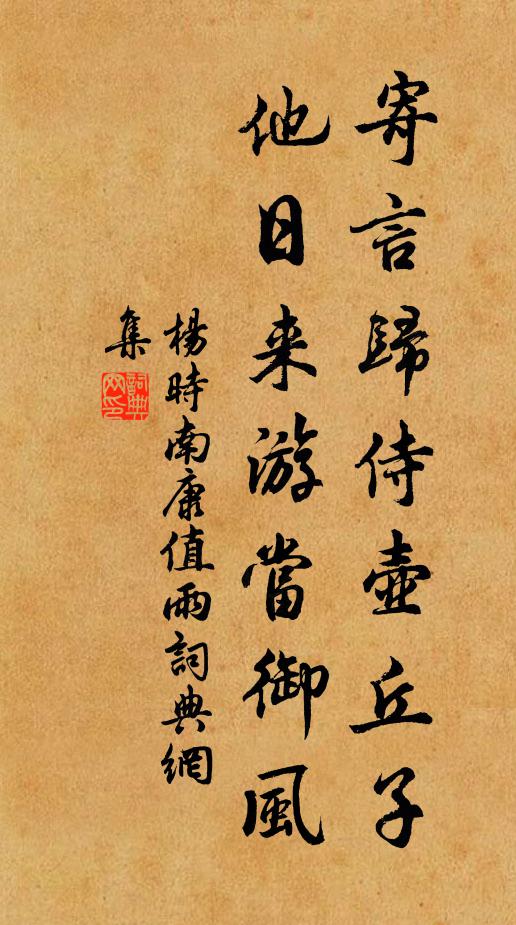 寄言歸侍壺丘子
他日来游當御風
楊時南康值雨詞典網
集
詞典網印